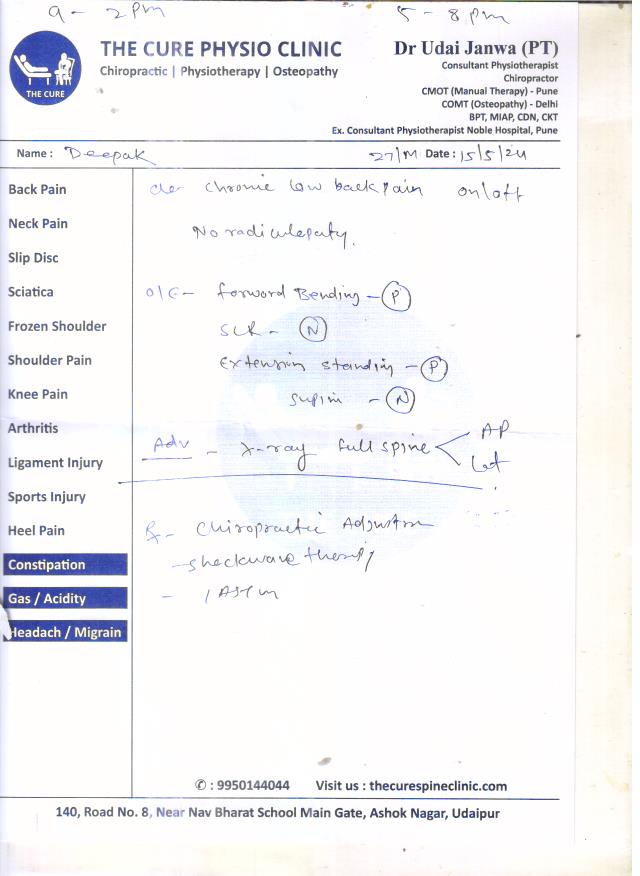 9 - 2 pm 5 - 8 pm
THE CURE
THE CURE PHYSIO CLINIC
Chiropractic | Physiotherapy | Osteopathy
Dr Udai Janwa (PT)
Consultant Physiotherapist
Chiropractor
CMOT (Manual Therapy) - Pune
COMT (Osteopathy) - Delhi
BPT, MIAP, CDN, CKT
Ex. Consultant Physiotherapist Noble Hospital, Pune
Name : Deepak 27/M Date : 15/5/24
Back Pain
Neck Pain
Slip Disc
Sciatica
Frozen Shoulder
Shoulder Pain
Knee Pain
Arthritis
Ligament Injury
Sports Injury
Heel Pain
Constipation
Gas / Acidity
Headach / Migrain
chronic low back pain on/off
No radiculopaty
O/E - forword Bending - P
SLR - N
Extension standing - P
supin - N
Adv - X-ray full spine AP
Lat
Rx - Chiropractic
- shockwave therapy
- IASTM
✆ : 9950144044 Visit us : thecurespineclinic.com
140, Road No. 8, Near Nav Bharat School Main Gate, Ashok Nagar, Udaipur